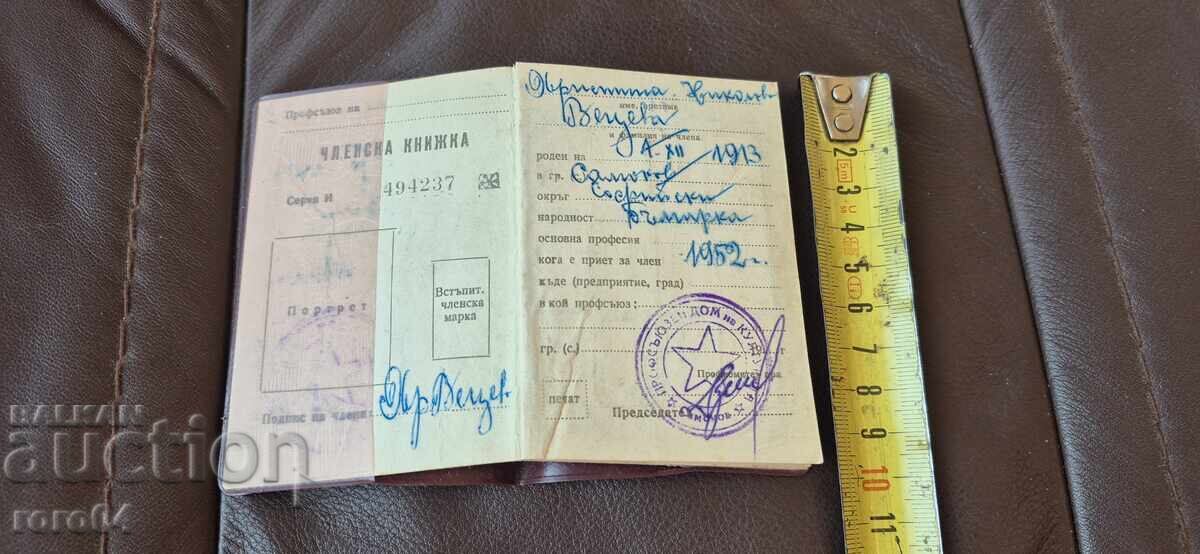 Профсъюз на
ЧЛЕНСКА КНИЖКА
Серия И 494237
Портрет
Встъпит.
членска
марка
Подпис на члена
Хр. Вецев
Християна Николова
име, презиме
Вецева
и фамилия на члена
роден на XII 1913
в гр. Самоков
окръг Софийски
народност българка
основна професия
кога е приет за член 1952 г.
къде (предприятие, град)
в кой профсъюз:
гр. (с.) 19 г.
ПРОФСЪЮЗЕН ДОМ на
Самоков
печат
Председател
2
3
4
5
6
7
8
9
10
11
BALKAN
auction
roro64